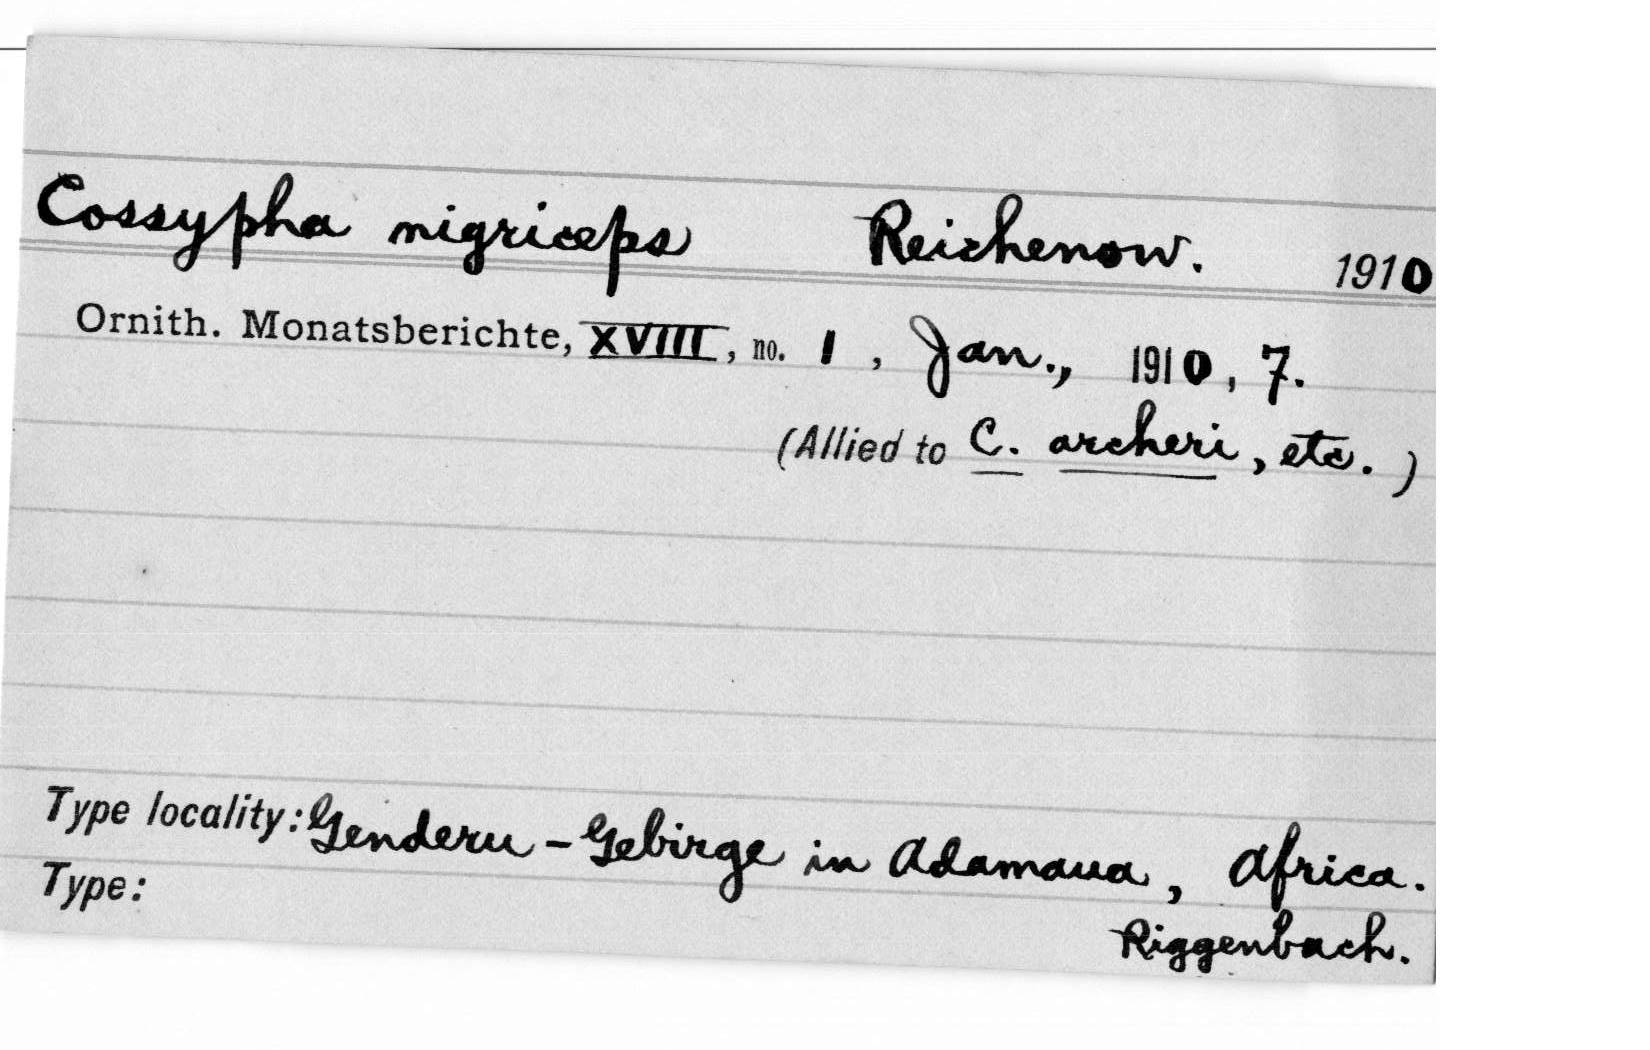 Cossypha nigriceps Reichenow. 1910
Ornith. Monatsberichte, XVIII, no. 1, Jan., 1910, 7.
(Allied to C. archeri, etc.)
Type locality: Genderu-Gebirge in Adamaua, Africa.
Type:
Riggenbach.